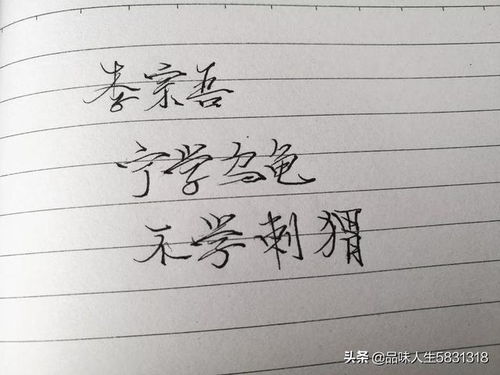 李宗吾
宁学乌龟
不学刺猬
头条 @品味人生5831318